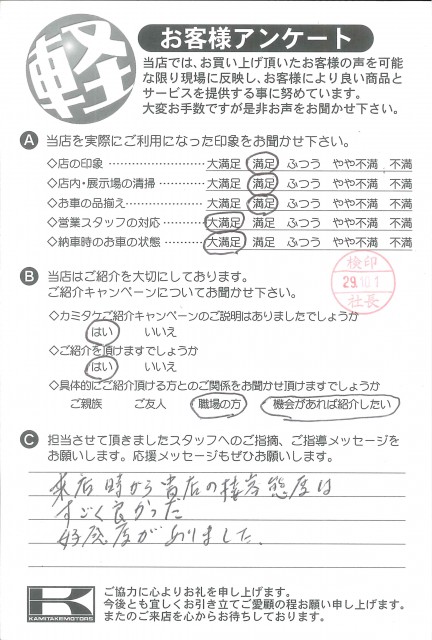 軽
お客様アンケート
当店では、お買い上げ頂いたお客様の声を可能
な限り現場に反映し、お客様により良い商品と
サービスを提供する事に努めています。
大変お手数ですが是非お声をお聞かせ下さい。
A 当店を実際にご利用になった印象をお聞かせ下さい。
◇店の印象 ………………… 大満足 満足 ふつう やや不満 不満
◇店内・展示場の清掃………… 大満足 満足 ふつう やや不満 不満
◇お車の品揃え……………… 大満足 満足 ふつう やや不満 不満
◇営業スタッフの対応………… 大満足 満足 ふつう やや不満 不満
◇納車時のお車の状態………… 大満足 満足 ふつう やや不満 不満
B 当店はご紹介を大切にしております。
ご紹介キャンペーンについてお聞かせ下さい。
検印
29.10.1
社長
◇カミタケご紹介キャンペーンのご説明はありましたでしょうか
はい いいえ
◇ご紹介を頂けますでしょうか
はい いいえ
◇具体的にご紹介頂ける方とのご関係をお聞かせ頂けますでしょうか
ご親族 ご友人 職場の方 機会があれば紹介したい
C 担当させて頂きましたスタッフへのご指摘、ご指導メッセージを
お願いします。応援メッセージもぜひお願いします。
来店時から貴店の接客態度は
すごく良かった
好感度がありました。
K
KAMITAKEMOTORS
ご協力に心よりお礼を申し上げます。
今後とも宜しくお引き立てご愛顧の程お願い申し上げます。
またのご来店を心からお待ちしております。